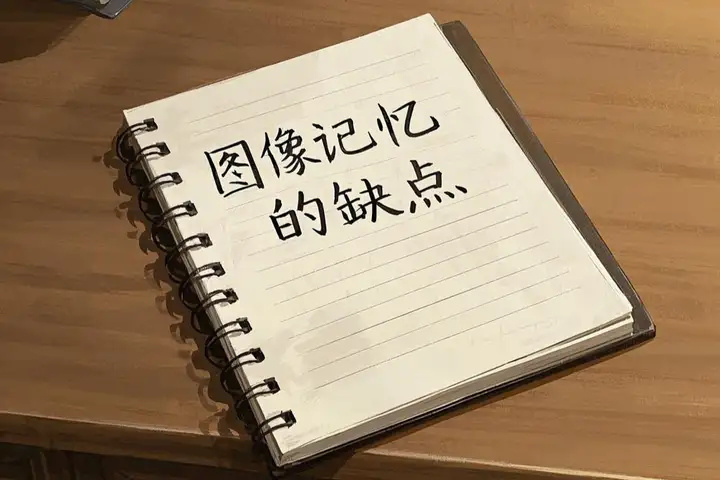 图像记忆
的缺点